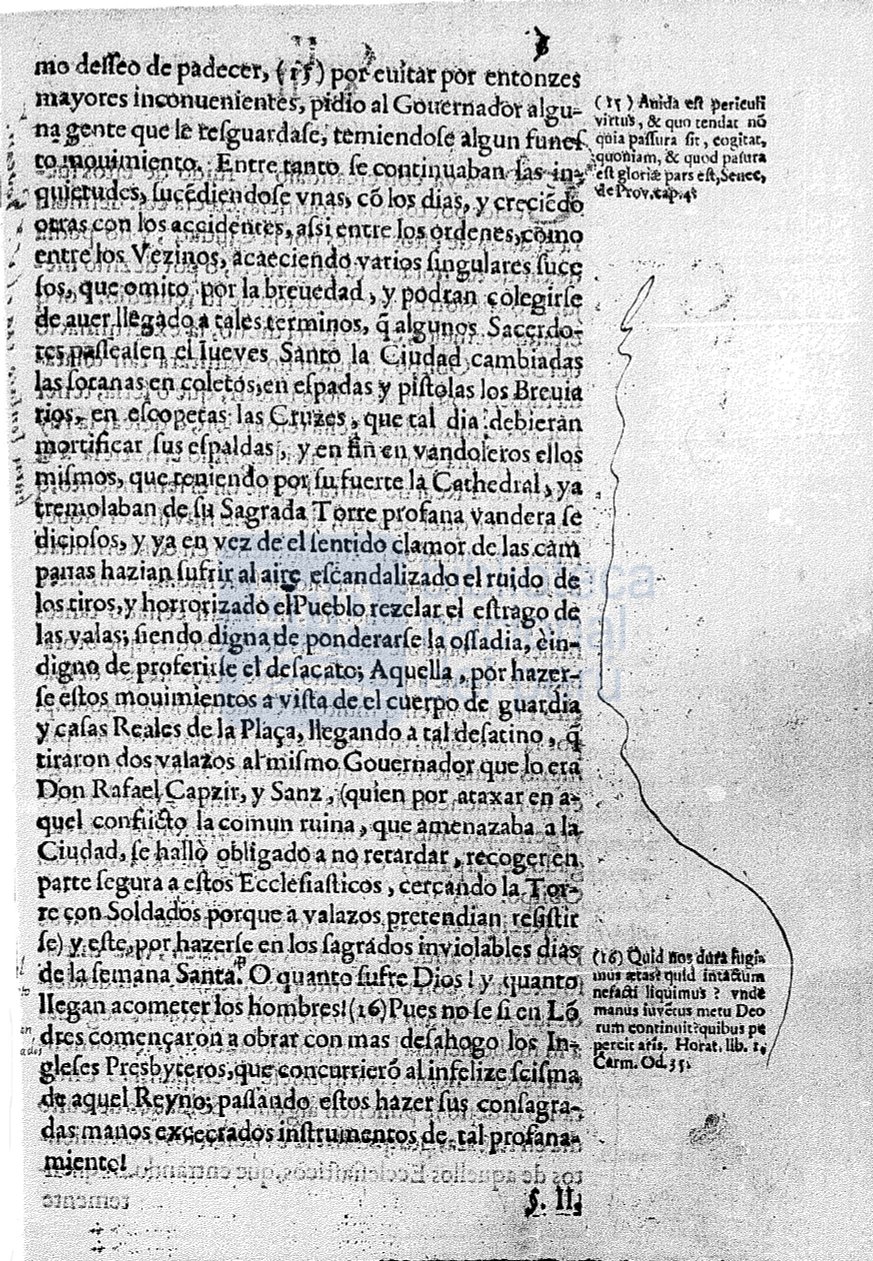 mo desseo de padecer, (15) por euitar por entonzes
mayores inconuenientes, pidio al Gouernador algu-
na gente que le resguardase, temiendose algun funes
to mouimiento. Entre tanto se continuaban las in-
quietudes, sucēdiendose vnas, cō los dias, y creciēdo
otras con los accidentes, assi entre los ordenes, como
entre los Vezinos, acaeciendo varios singulares suce
sos, que omito por la breuedad, y podran colegirse
de auer llegado a tales terminos, q̃ algunos Sacerdo-
tes passeasen el Iueves Santo la Ciudad cambiadas
las sotanas en coletos, en espadas y pistolas los Breuia
rios, en escopetas las Cruzes, que tal dia debieran
mortificar sus espaldas, y en fin en vandoleros ellos
mismos, que teniendo por su fuerte la Cathedral, ya
tremolaban de su Sagrada Torre profana vandera se
diciosos, y ya en vez de el sentido clamor de las cam
panas hazian sufrir al aire escandalizado el ruido de
los tiros, y horrorizado el Pueblo rezelar el estrago de
las valas; siendo digna de ponderarse la ossadia, è in-
digno de proferirse el desacato; Aquella, por hazer-
se estos mouimientos a vista de el cuerpo de guardia
y casas Reales de la Plaça, llegando a tal desatino, q̃
tiraron dos valazos al mismo Gouernador que lo era
Don Rafael Capzir, y Sanz, (quien por ataxar en a-
quel conflicto la comun ruina, que amenazaba a la
Ciudad, se hallò obligado a no retardar, recoger en
parte segura a estos Ecclesiasticos, cercando la Tor-
re con Soldados porque a valazos pretendian resistir
se) y este, por hazerse en los sagrados inviolables dias
de la semana Santa. O quanto sufre Dios! y quanto
llegan acometer los hombres! (16) Pues no se si en Lō
dres començaron a obrar con mas desahogo los In-
gleses Presbyteros, que concurrierō al infelize scisma
de aquel Reyno; passando estos hazer sus consagra-
das manos execrados instrumentos de tal profana-
miento!
§. II.
(15) Auida est periculi
virtus, & quo tendat nō
quia passura sit, cogitat,
quoniam, & quod pasura
est gloriæ pars est, Senec,
de Prov. cap. 4.
(16) Quid nos dura fugi-
mus ætas? quid intactum
nefasti liquimus? vnde
manus iuvetus metu Deo
rum continuit? quibus pe
percit aris. Horat. lib. 1.
Carm. Od. 35.
biblioteca
nacional
del perú